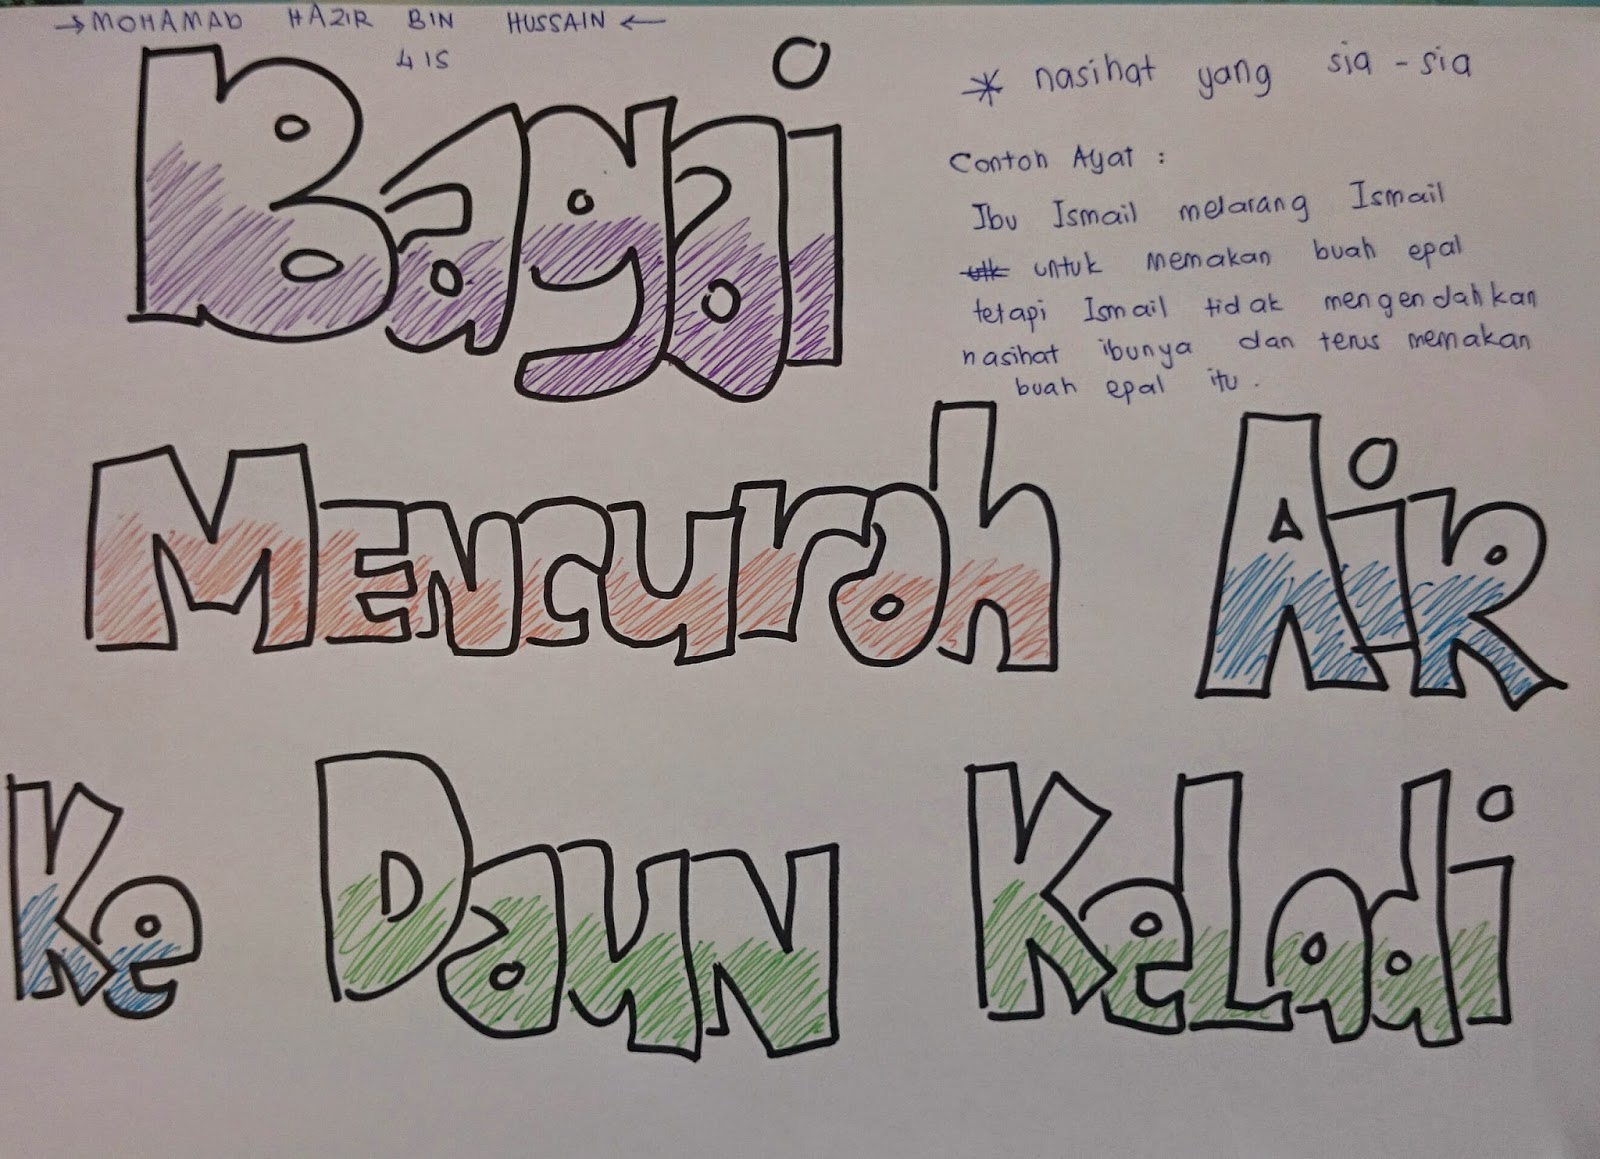 → MOHAMAD HAZIR BIN HUSSAIN ←
4 IS
* nasihat yang sia - sia
Contoh Ayat :
Ibu Ismail melarang Ismail
utk untuk memakan buah epal
tetapi Ismail tidak mengendahkan
nasihat ibunya dan terus memakan
buah epal itu.
Bagai
Mencurah Air
Ke Daun Keladi